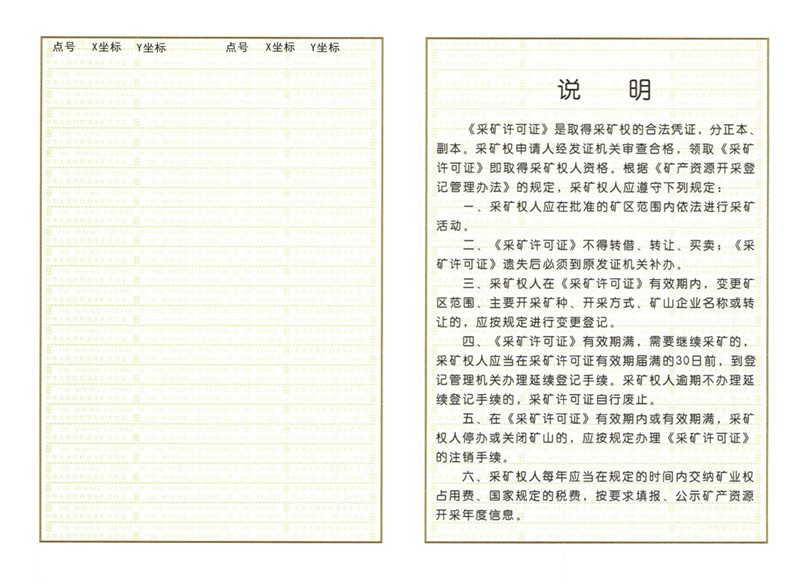 点号 X坐标 Y坐标 点号 X坐标 Y坐标
说 明
《采矿许可证》是取得采矿权的合法凭证，分正本、
副本。采矿权申请人经发证机关审查合格，领取《采矿
许可证》即取得采矿权人资格。根据《矿产资源开采登
记管理办法》的规定，采矿权人应遵守下列规定：
一、采矿权人应在批准的矿区范围内依法进行采矿
活动。
二、《采矿许可证》不得转借、转让、买卖；《采
矿许可证》遗失后必须到原发证机关补办。
三、采矿权人在《采矿许可证》有效期内，变更矿
区范围、主要开采矿种、开采方式、矿山企业名称或转
让的，应按规定进行变更登记。
四、《采矿许可证》有效期满，需要继续采矿的，
采矿权人应当在采矿许可证有效期届满的30日前，到登
记管理机关办理延续登记手续。采矿权人逾期不办理延
续登记手续的，采矿许可证自行废止。
五、在《采矿许可证》有效期内或有效期满，采矿
权人停办或关闭矿山的，应按规定办理《采矿许可证》
的注销手续。
六、采矿权人每年应当在规定的时间内交纳矿业权
占用费、国家规定的税费，按要求填报、公示矿产资源
开采年度信息。